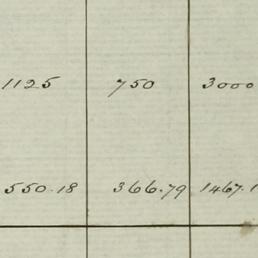 1125 750 3000
550.18 366.79 1467.1